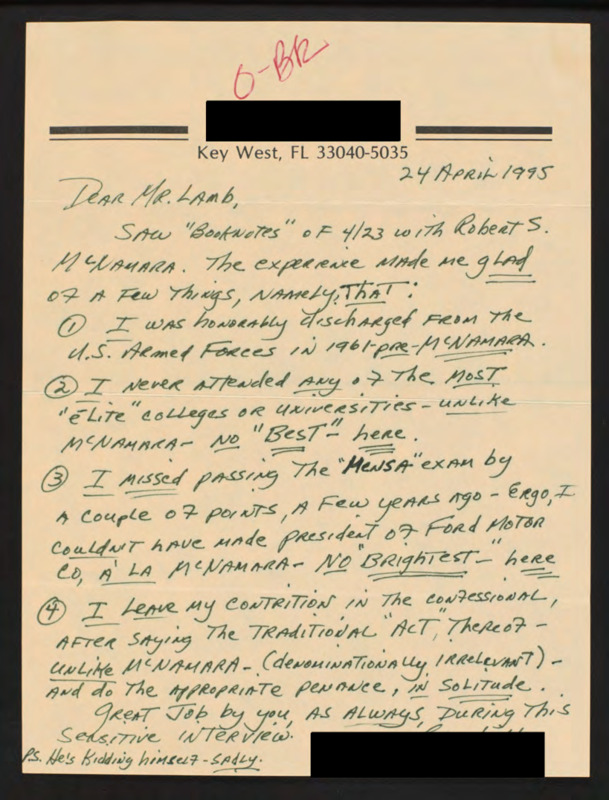 O-BR
Key West, FL 33040-5035
24 April 1995
Dear Mr. Lamb,
Saw "Booknotes" of 4/23 with Robert S.
McNamara. The experience made me glad
of a few things, namely, that:
① I was honorably discharged from the
U.S. Armed Forces in 1961-pre-McNamara.
② I never attended any of the most
"élite" colleges or universities - unlike
McNamara - no "Best" - here.
③ I missed passing the "Mensa" exam by
a couple of points, a few years ago - ergo, I
couldn't have made president of Ford Motor
Co, à la McNamara - No "Brightest" - here
④ I leave my contrition in the confessional,
after saying the traditional "Act", thereof -
unlike McNamara - (denominationally irrelevant) -
and do the appropriate penance, in solitude.
Great job by you, as always, during this
sensitive interview.
P.S. He's kidding himself - sadly.